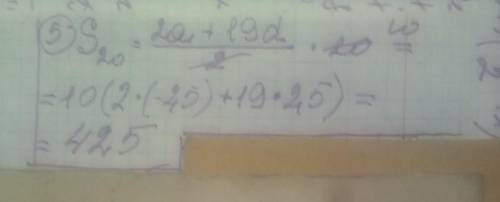 ⑤ S₂₀ = (2a₁ + 19d)/2 · 20 10 =
= 10(2·(-25) + 19·25) =
= 425